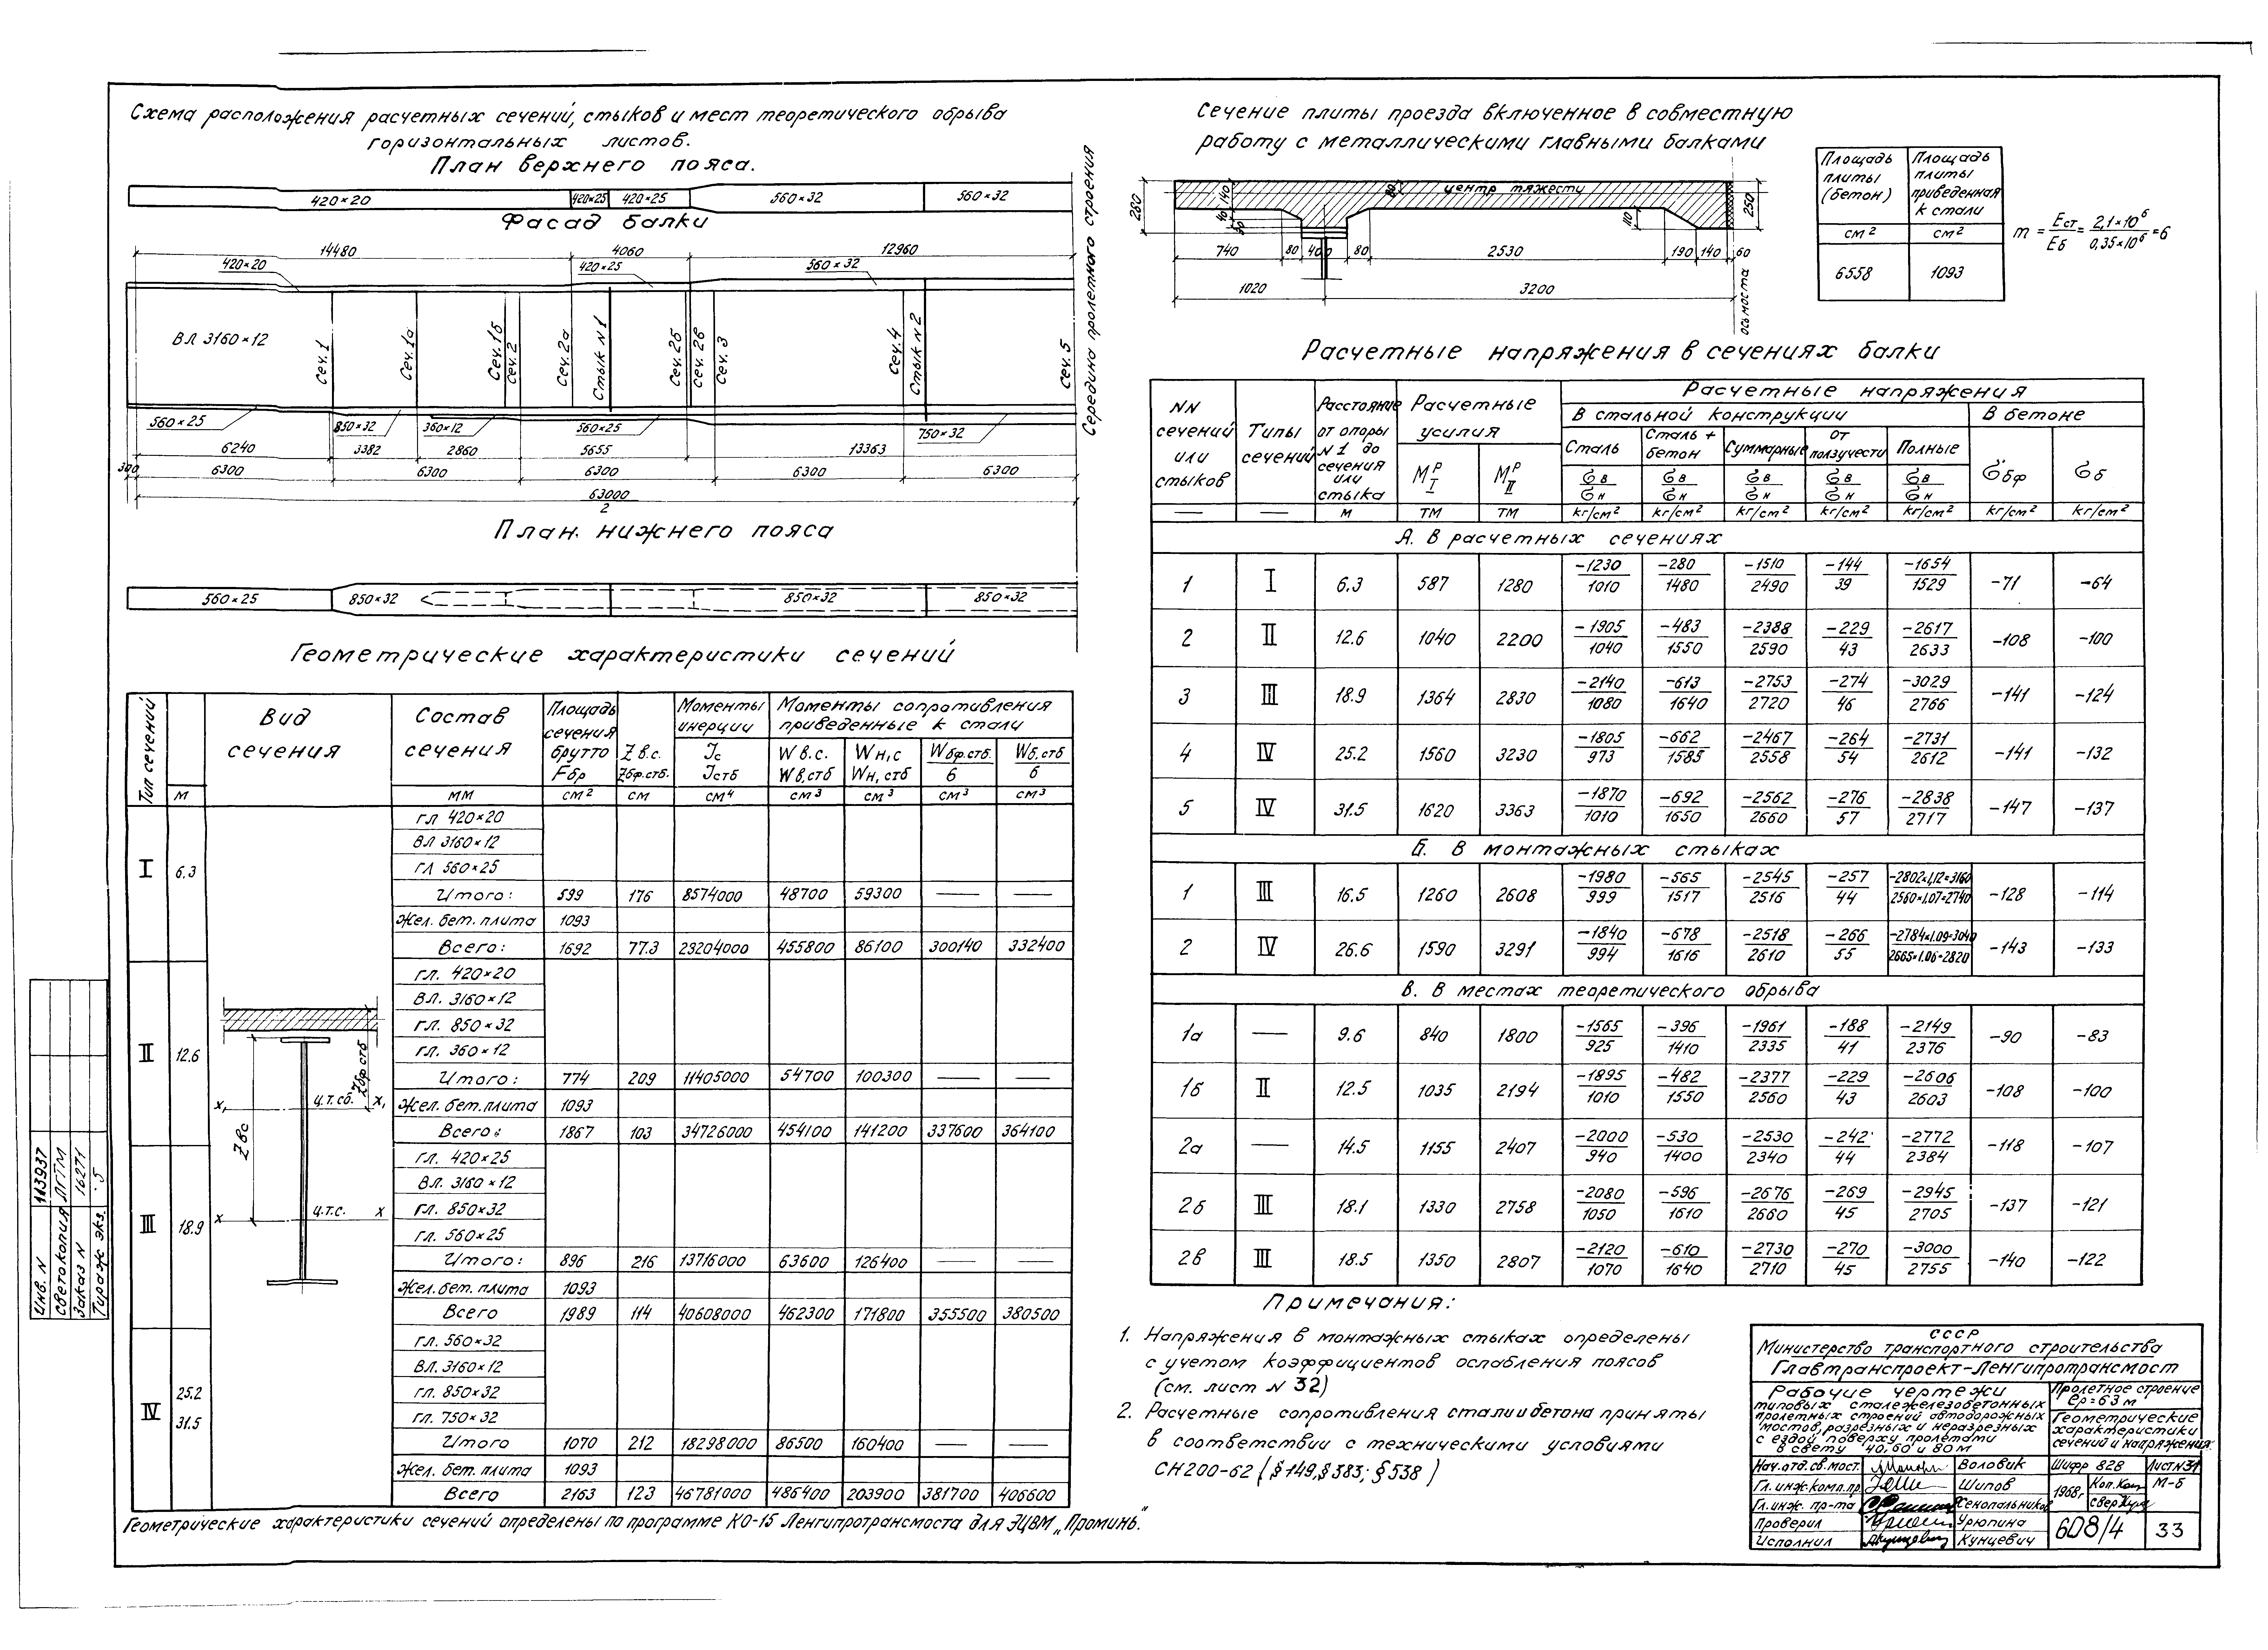 Схема расположения расчетных сечений, стыков и мест теоретического обрыва
горизонтальных листов.
План верхнего пояса.
420×20 420×25 420×25 560×32 560×32
Фасад балки
14480 4060 12960
420×20 420×25 560×32
ВЛ 3160×12
Сеч.1 Сеч.1а Сеч.1б Сеч.2 Сеч.2а Стык N1 Сеч.2б Сеч.2в Сеч.3 Сеч.4 Стык N2 Сеч.5
Середина пролетного строения
560×25 850×32 360×12 560×25 750×32
6240 3382 2860 5655 13363
300 6300 6300 6300 6300 6300
63000
2
План нижнего пояса
560×25 850×32 850×32 850×32
Геометрические характеристики сечений
Тип сечений м Вид сечения Состав сечения мм
Площадь сечения брутто Fбр см²
Zв.с. Zбф.стб. см
Моменты инерции Jс Jстб см⁴
Моменты сопротивления приведенные к стали
Wв.с. Wв,стб см³ Wн,с Wн,стб см³ Wбф.стб. 6 см³ Wб.стб 6 см³
I 6.3
гл 420×20
ВЛ 3160×12
гл 560×25
Итого: 599 176 8574000 48700 59300 — —
Жел. бет. плита 1093
Всего: 1692 77.3 23204000 455800 86100 300140 332400
II 12.6
гл. 420×20
ВЛ. 3160×12
гл. 850×32
гл. 360×12
Итого: 774 209 11405000 54700 100300 — —
Жел. бет. плита 1093
Всего: 1867 103 34726000 454100 141200 337600 364100
III 18.9
гл. 420×25
Вл. 3160×12
гл. 850×32
гл. 560×25
Итого: 896 216 13716000 63600 126400 — —
Жел. бет. плита 1093
Всего 1989 114 40608000 462300 171800 355500 380500
IV 25.2 31.5
гл. 560×32
Вл. 3160×12
гл. 850×32
гл. 750×32
Итого 1070 212 18298000 86500 160400 — —
Жел. бет. плита 1093
Всего 2163 123 46781000 486400 203900 381700 406600
Zбф стб
x₁ ц.т.сб. x₁
Zвс
x ц.т.с. x
Геометрические характеристики сечений определены по программе КО-15 Ленгипротрансмоста для ЭЦВМ „Проминь."
Сечение плиты проезда включенное в совместную
работу с металлическими главными балками
280 140 40 50 80 центр тяжести 110 250
740 80 400 80 2530 190 140 60
1020 3200
ось моста
Площадь плиты (бетон) Площадь плиты приведенная к стали
см² см²
6558 1093
m = Eст/Eб = 2,1×10⁶/0,35×10⁶ = 6
Расчетные напряжения в сечениях балки
NN сечений или стыков
Типы сечений
Расстояние от опоры N1 до сечения или стыка
Расчетные усилия
Расчетные напряжения
В стальной конструкции В бетоне
Сталь Сталь + бетон Суммарные от ползучести Полные
M I P M II P σв/σн σв/σн σв/σн σв/σн σв/σн σбф σб
— — м тм тм кг/см² кг/см² кг/см² кг/см² кг/см² кг/см² кг/см²
А. В расчетных сечениях
1 I 6.3 587 1280 -1230/1010 -280/1480 -1510/2490 -144/39 -1654/1529 -71 -64
2 II 12.6 1040 2200 -1905/1040 -483/1550 -2388/2590 -229/43 -2617/2633 -108 -100
3 III 18.9 1364 2830 -2140/1080 -613/1640 -2753/2720 -274/46 -3029/2766 -141 -124
4 IV 25.2 1560 3230 -1805/973 -662/1585 -2467/2558 -264/54 -2731/2612 -141 -132
5 IV 31.5 1620 3363 -1870/1010 -692/1650 -2562/2660 -276/57 -2838/2717 -147 -137
Б. В монтажных стыках
1 III 16.5 1260 2608 -1980/999 -565/1517 -2545/2516 -257/44 -2802×1,12=3160/2560×1.07=2740 -128 -114
2 IV 26.6 1590 3291 -1840/994 -678/1616 -2518/2610 -266/55 -2784×1.09=3040/2665×1.06=2820 -143 -133
В. В местах теоретического обрыва
1а — 9.6 840 1800 -1565/925 -396/1410 -1961/2335 -188/41 -2149/2376 -90 -83
1б II 12.5 1035 2194 -1895/1010 -482/1550 -2377/2560 -229/43 -2606/2603 -108 -100
2а — 14.5 1155 2407 -2000/940 -530/1400 -2530/2340 -242/44 -2772/2384 -118 -107
2б III 18.1 1330 2758 -2080/1050 -596/1610 -2676/2660 -269/45 -2945/2705 -137 -121
2в III 18.5 1350 2807 -2120/1070 -610/1640 -2730/2710 -270/45 -3000/2755 -140 -122
Примечания:
1. Напряжения в монтажных стыках определены
с учетом коэффициентов ослабления поясов
(см. лист N 32)
2. Расчетные сопротивления стали и бетона приняты
в соответствии с техническими условиями
СН200-62 (§149, §383; §538)
СССР
Министерство транспортного строительства
Главтранспроект-Ленгипротрансмост
Рабочие чертежи
типовых сталежелезобетонных
пролетных строений автодорожных
мостов, разрезных и неразрезных
с ездой поверху пролетами
в свету 40, 60 и 80 м
Пролетное строение
ℓр=63 м
Геометрические
характеристики
сечений и напряжения.
Нач. отд. св. мост. Воловик Шифр 828 Лист N31
Гл. инж. комп. пр. Шипов 1968г Коп. М-Б
Гл. инж. пр-та Сенопальников свер
Проверил Урюпина 608/4 33
Исполнил Кунцевич
Инв. N 113937
Светокопия ЛГТМ
Заказ N 16271
Тираж экз. 5